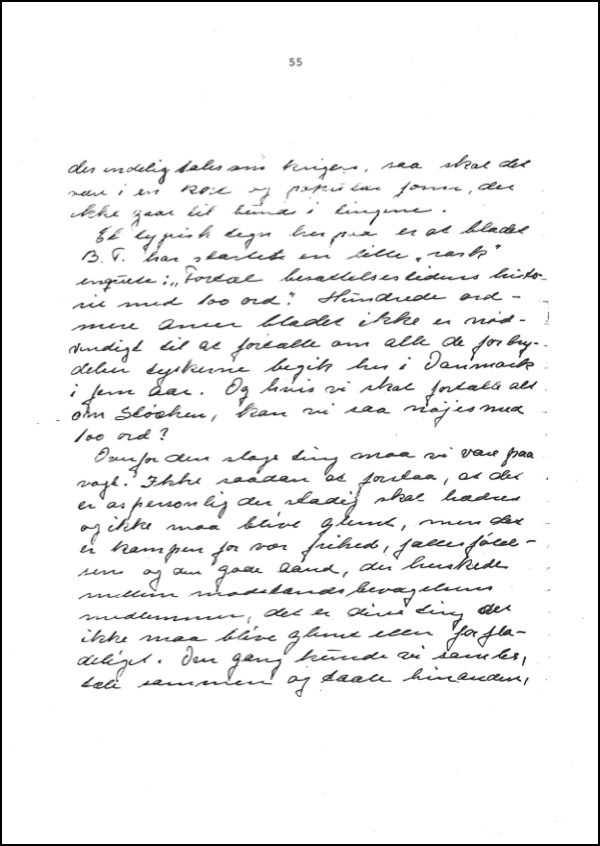 55
der endelig tales om krigen, saa skal det
være i en kort og populær form, der
ikke gaar til bunds i tingene.
Et typisk tegn herpaa er at bladet
B.T. har startet en lille „rask"
enquete: „Fortæl besættelsestidens histo-
rie med 100 ord". Hundrede ord -
mere anser bladet ikke er nød-
vendigt til at fortælle om alle de forbry-
delser tyskerne begik her i Danmark
i fem aar. Og hvis vi skal fortælle alt
om Stocken, kan vi saa nøjes med
100 ord?
Overfor den slags ting maa vi være paa
vagt. Ikke saadan at forstaa, at det
er as personlig der stadig skal hades
og ikke maa blive glemt, men det
er kampen for vor frihed, fællesføle-
sen og den gode aand, der herskede
mellem modstandsbevægelsens
medlemmer, det er disse ting der
ikke maa blive glemt eller forfla-
deliget. Den gang kunde vi samles,
tale sammen og taale hinanden,